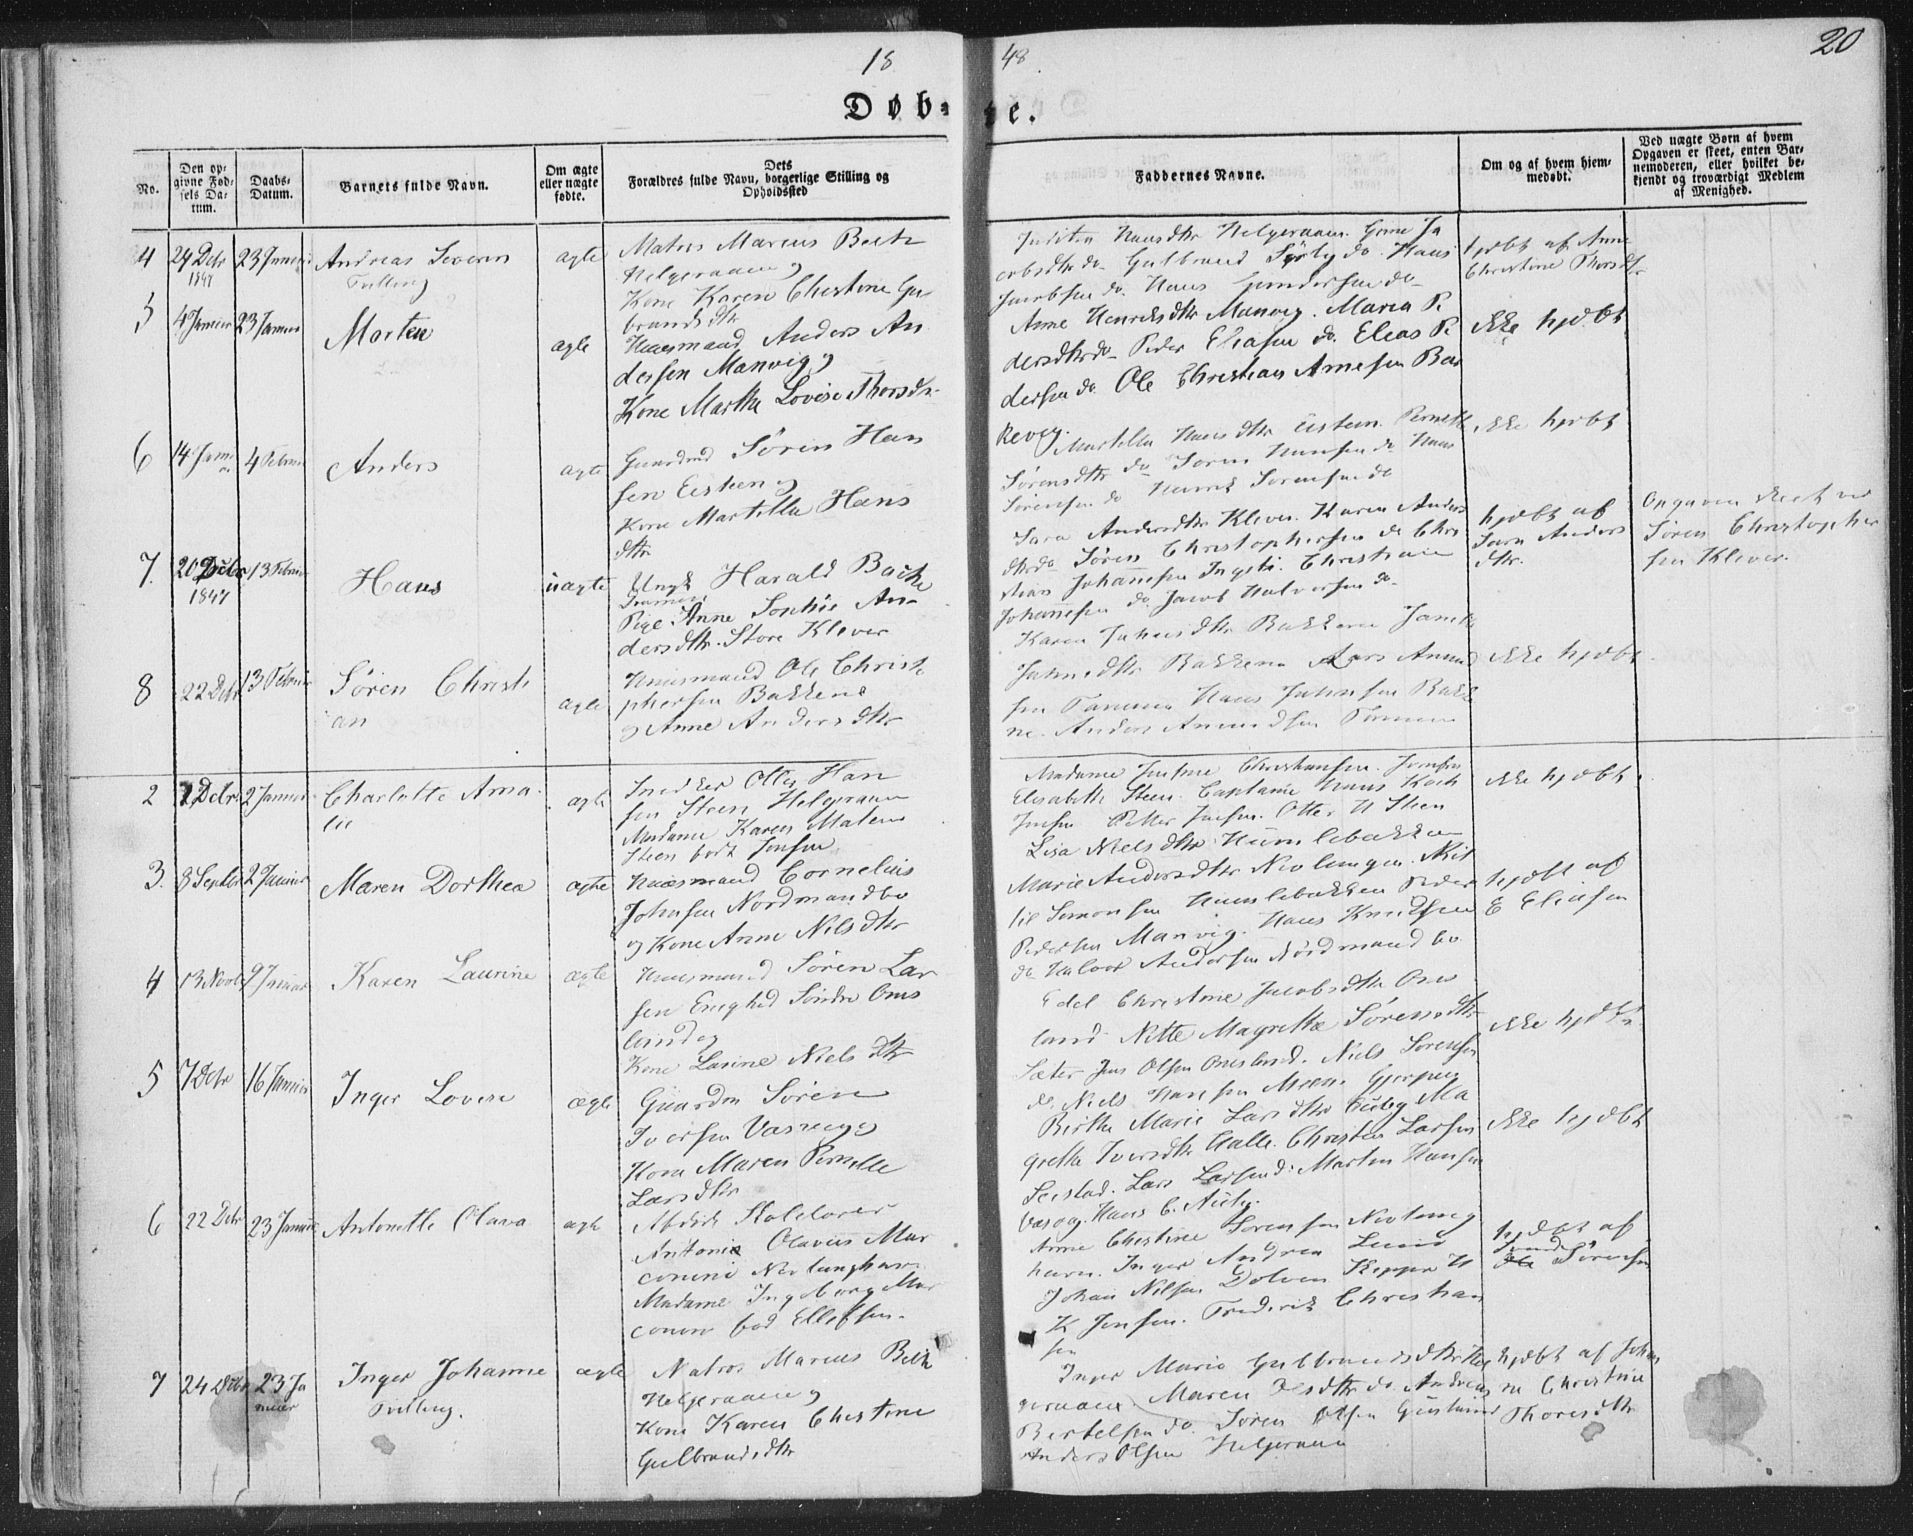 1848
20
Døbte.
No.
Den op-
givne Fød-
sels Da-
tum.
Daabs-
Datum.
Barnets fulde Navn.
Om ægte
eller uægte
fødte.
Dets
Forældres fulde Navn, borgerlige Stilling og
Opholdssted
Faddernes Navne.
Om og af hvem hjem-
medøbt.
Ved uægte Børn af hvem
Opgaven er skeet, enten Bar-
nemoderen, eller hvilket be-
kjendt og troværdigt Medlem
af Menighed.
4 24 Debr 1847 23 Januar Andreas Severin
Tvilling
ægte
Matros Marcus Beck
Helgeraaen og
Kone Karen Christine Gul
brandsdtr
Hansdtr Helgeraaen.
do Gulbrand do Hans
Jacobsen do Hans Gundersen do
hjdøbt af Anne
Christine Thorsdtr
5 4 Januar 23 Januar Morten ægte
Huusmand Anders An
dersen Manvig og
Kone Marthe Lovise Thorsdtr
Anne Henriksdtr Manvig. Maren Pe
dersdtr do Peder Eliasen do Elias Pe
dersen do Ole Christian Arnesen Bar
kevig.
ikke hjdøbt
6 14 Januar 4 Februar Anders ægte
Gaardmd Søren Han
sen Eistein og
Kone Martella Hans
dtr
Martella Hansdtr Eistein. Pernelle
Sørensdtr do Søren Hansen do Hans
Sørensen do Henrik Sørensen do
ikke hjdøbt
7. 20 Debr 1847 13 Februar Hans uægte
Ungk Harald Backe
Pige Anne Sophie An-
dersdtr. Store Klever
Sara Andersdtr Klever. Karen Anders
dtr do Søren Christophersen do Chri
stian Johannesen Christian
Johannesen do Jacob Halvorsen do
hjdøbt af
Sara Anders
dtr.
Opgaven skeet ved
Søren Christopher
sen Klever.
8 22 Debr 13 Februar Søren Christi
an
ægte
Huusmand Ole Christo
phersen Bakkene
og Anne Andersdtr
Karen Bakkene
Bakkene Lars Amund
sen Hans Bakke
ne. Anders Amundsen
ikke hjdøbt.
2 Debr 2 Januar Charlotte Ama-
lie
ægte
Snedker Otter Han
sen Steen Helgeraaen
Madame Karen Malene
Steen født Jensen
Madame Christensen. Jomfru
Elisabeth Steen. Captainer Hans Koch
Jensen Petter Jensen. Otter H Steen
ikke hjdøbt.
3. 8 Septbr 2 Januar Maren Dorthea ægte
Huusmand Cornelius
Johnsen Nordmandbo
og Kone Anne Nilsdtr
Lisa Nielsdtr Humlebakken
Marie Andersdtr Nevlungen.
Simonsen Humlebakken Peder
Pedersen Manvig. Hans Knudsen
do Halvor Andersen Nordmandbo
hjdøbt af
E Eliasen
4 13 Novbr 9 Januar Karen Laurine ægte
Huusmand Søren Lar
sen Eneghed Søndre Oms
land og
Kone Lasine Nielsdtr
Edel Christine Jacobsdtr Oms
land Nitte Magrethe Sørensdtr
Sæter Jens Olsen Omsland. Niels Sørensen
do Niels Hansen Gjerpen
ikke hjdøbt.
5 7 Debr 16 Januar Inger Lovise ægte
Gaardm Søren
Iversen Vasvig og
Kone Maren Pernelle
Larsdtr
Birthe Marie Larsdtr Auby Ma
grethe Iversdtr Halle. Christen Larsen
Seistad. Lars Larsen do Morten Hansen
Hans C. Auby.
ikke hjdøbt
6 22 Debr 23 Januar Antonette Olava ægte
Skolelærer
Antonie Olavus Mar
conini Nevlunghavn
Madame Ingeborg Mar
conini fød Ellefsen.
Anne Christine Sørensen Nevlung
havn. Inger Andrea Lund
Johan Nilsen Dolven Skipper H
K Jensen. Frederik Christian
sen
hjdøbt af
Sørensen
7 24 Debr 23 Ja
nuar
Inger Johanne
Tvilling.
ægte
Matros Marcus Beck
Helgeraaen og
Kone Karen Christine
Gulbrandsdtr
Inger Marie Gulbrandsdtr Hel
geraaen. Maren Olsdtr do Andreas
Bertelsen do. Søren Olsen
Anders Olsen Helgeraaen
hjdøbt af
Christine
Thorsdtr